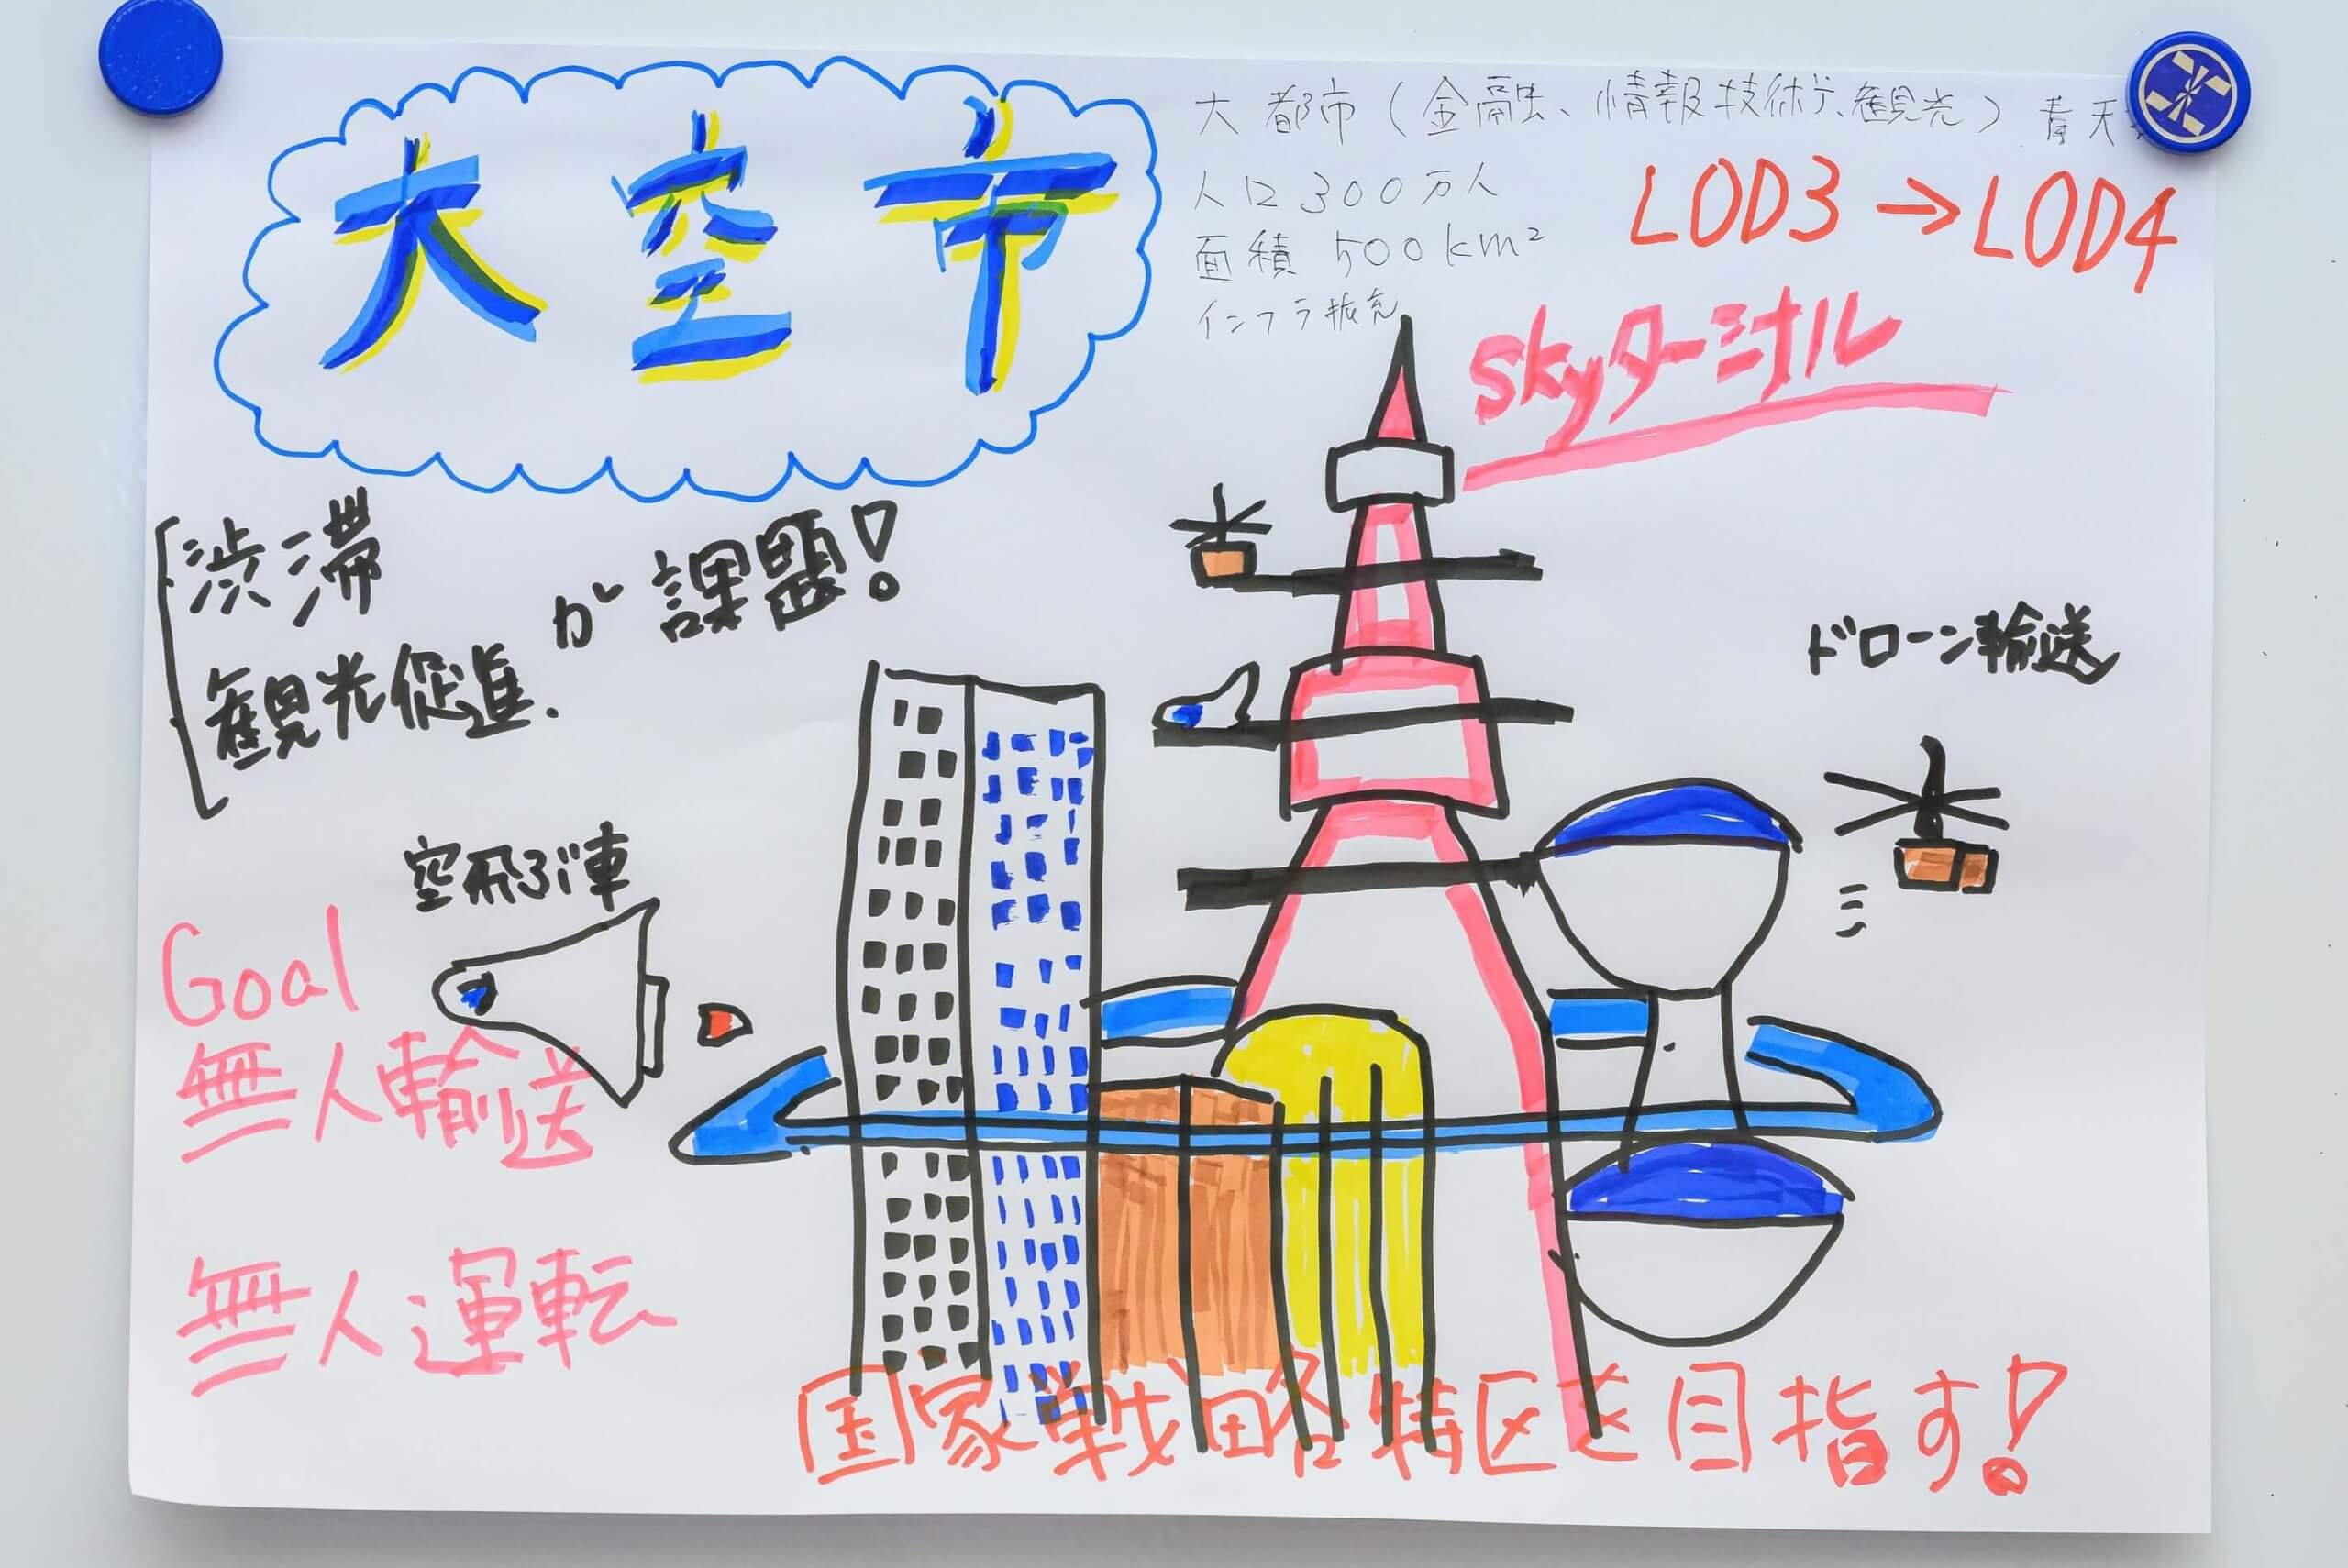 大空市
大都市（金融、情報技術、観光） 青天
人口 300万人
面積 500km²
インフラ拡充
LOD3→LOD4
Skyターミナル
渋滞
観光促進.
が課題!
ドローン輸送
空飛ぶ車
Goal
無人輸送
無人運転
国家戦略特区を目指す!